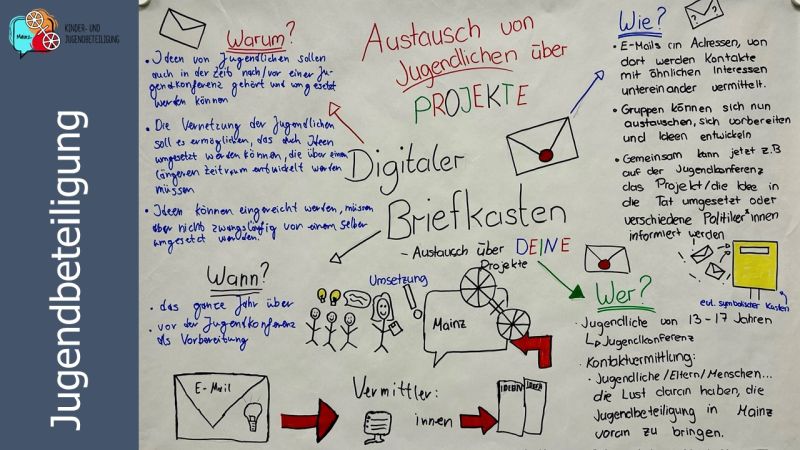 Mainz
KINDER- UND
JUGENDBETEILIGUNG
Jugendbeteiligung
Austausch von
Jugendlichen über
PROJEKTE
Digitaler
Briefkasten
- Austausch über DEINE
Projekte
Warum?
• Ideen von Jugendlichen sollen
auch in der Zeit nach/vor einer Ju-
gendkonferenz gehört und umgesetzt
werden können
• Die Vernetzung der Jugendlichen
soll es ermöglichen, das auch Ideen
umgesetzt werden können, die über einen
längeren Zeitraum entwickelt werden
müssen
• Ideen können eingereicht werden, müssen
aber nicht zwangsläufig von einem selber
umgesetzt werden.
Wann?
• das ganze Jahr über
• vor der Jugendkonferenz
als Vorbereitung
Wie?
• E-Mails an Adressen, von
dort werden Kontakte
mit ähnlichen Interessen
untereinander vermittelt.
• Gruppen können sich nun
austauschen, sich vorbereiten
und Ideen entwickeln
• Gemeinsam kann jetzt z.B
auf der Jugendkonferenz
das Projekt/die Idee in
die Tat umgesetzt oder
verschiedene Politiker*innen
informiert werden
evt. symbolischer Kasten
Wer?
• Jugendliche von 13-17 Jahren
↳ Jugendkonferenz
• Kontaktvermittlung:
• Jugendliche/Eltern/Menschen...
die Lust daran haben, die
Jugendbeteiligung in Mainz
voran zu bringen.
Umsetzung
!
Mainz
E-Mail
Vermittler:
innen
IDEEN
IDEEN